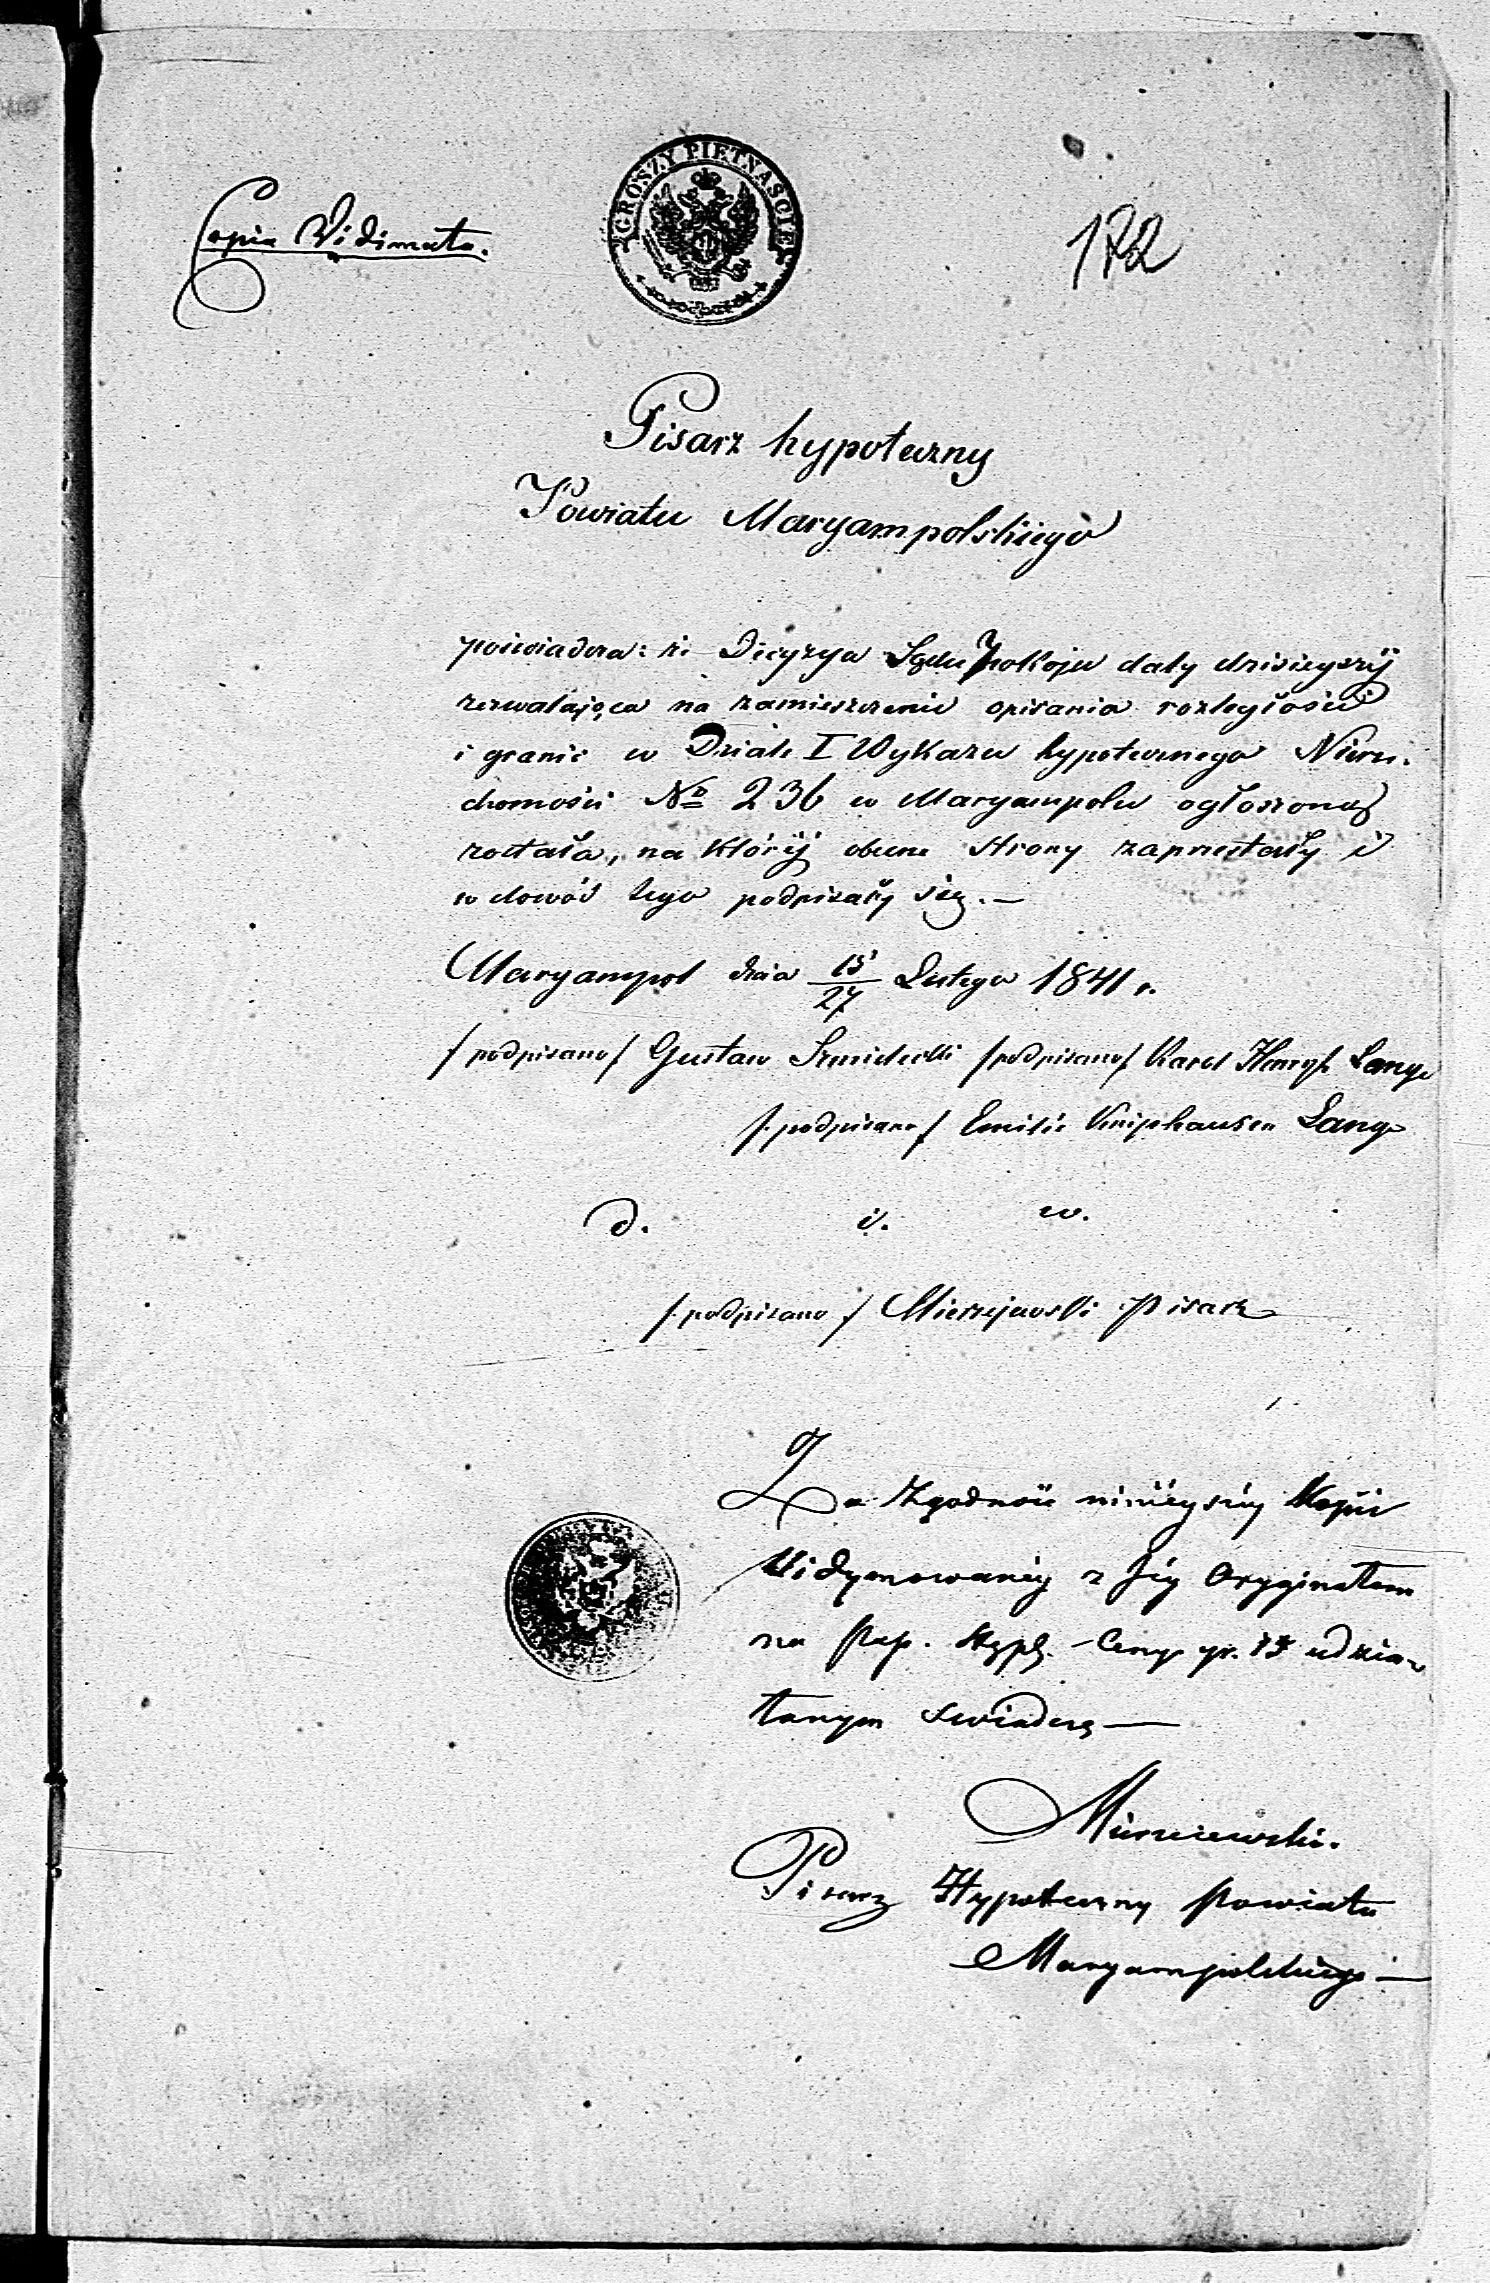 Copia Vidimata.
GROSZY PIETNAŚCIE
172
Pisarz hypoteczny
Powiatu Maryampolskiego
poświadcza: że Decyzya Sądu Pokoju daty dzisieyszéj
zezwalaiąca na zamieszczenie opisania rozległości
i granic w Dziale I Wykazu hypotecznego Nieru-
chomości No 236 w Maryampolu ogłoszoną
została, na któréj obecne strony zaprzestały i
w dowód tego podpisały się. —
Maryampol dnia 15/27 Lutego 1841 r.
/podpisano/ Gustaw /podpisano/ Karol Henryk Lange
/podpisano/ Emilie Kniphausen Lange
d. i. w.
/podpisano/ Mierzejewski Pisarz
Za Zgodność ninieyszéy Kopii
Vidymowanéy z Jéy Oryginałem
na Pap. Stępl. Ceny gr. 15 udzia-
łanym świadczę —
Mierzejewski.
Pisarz Hypoteczny Powiatu
Maryampolskiego —